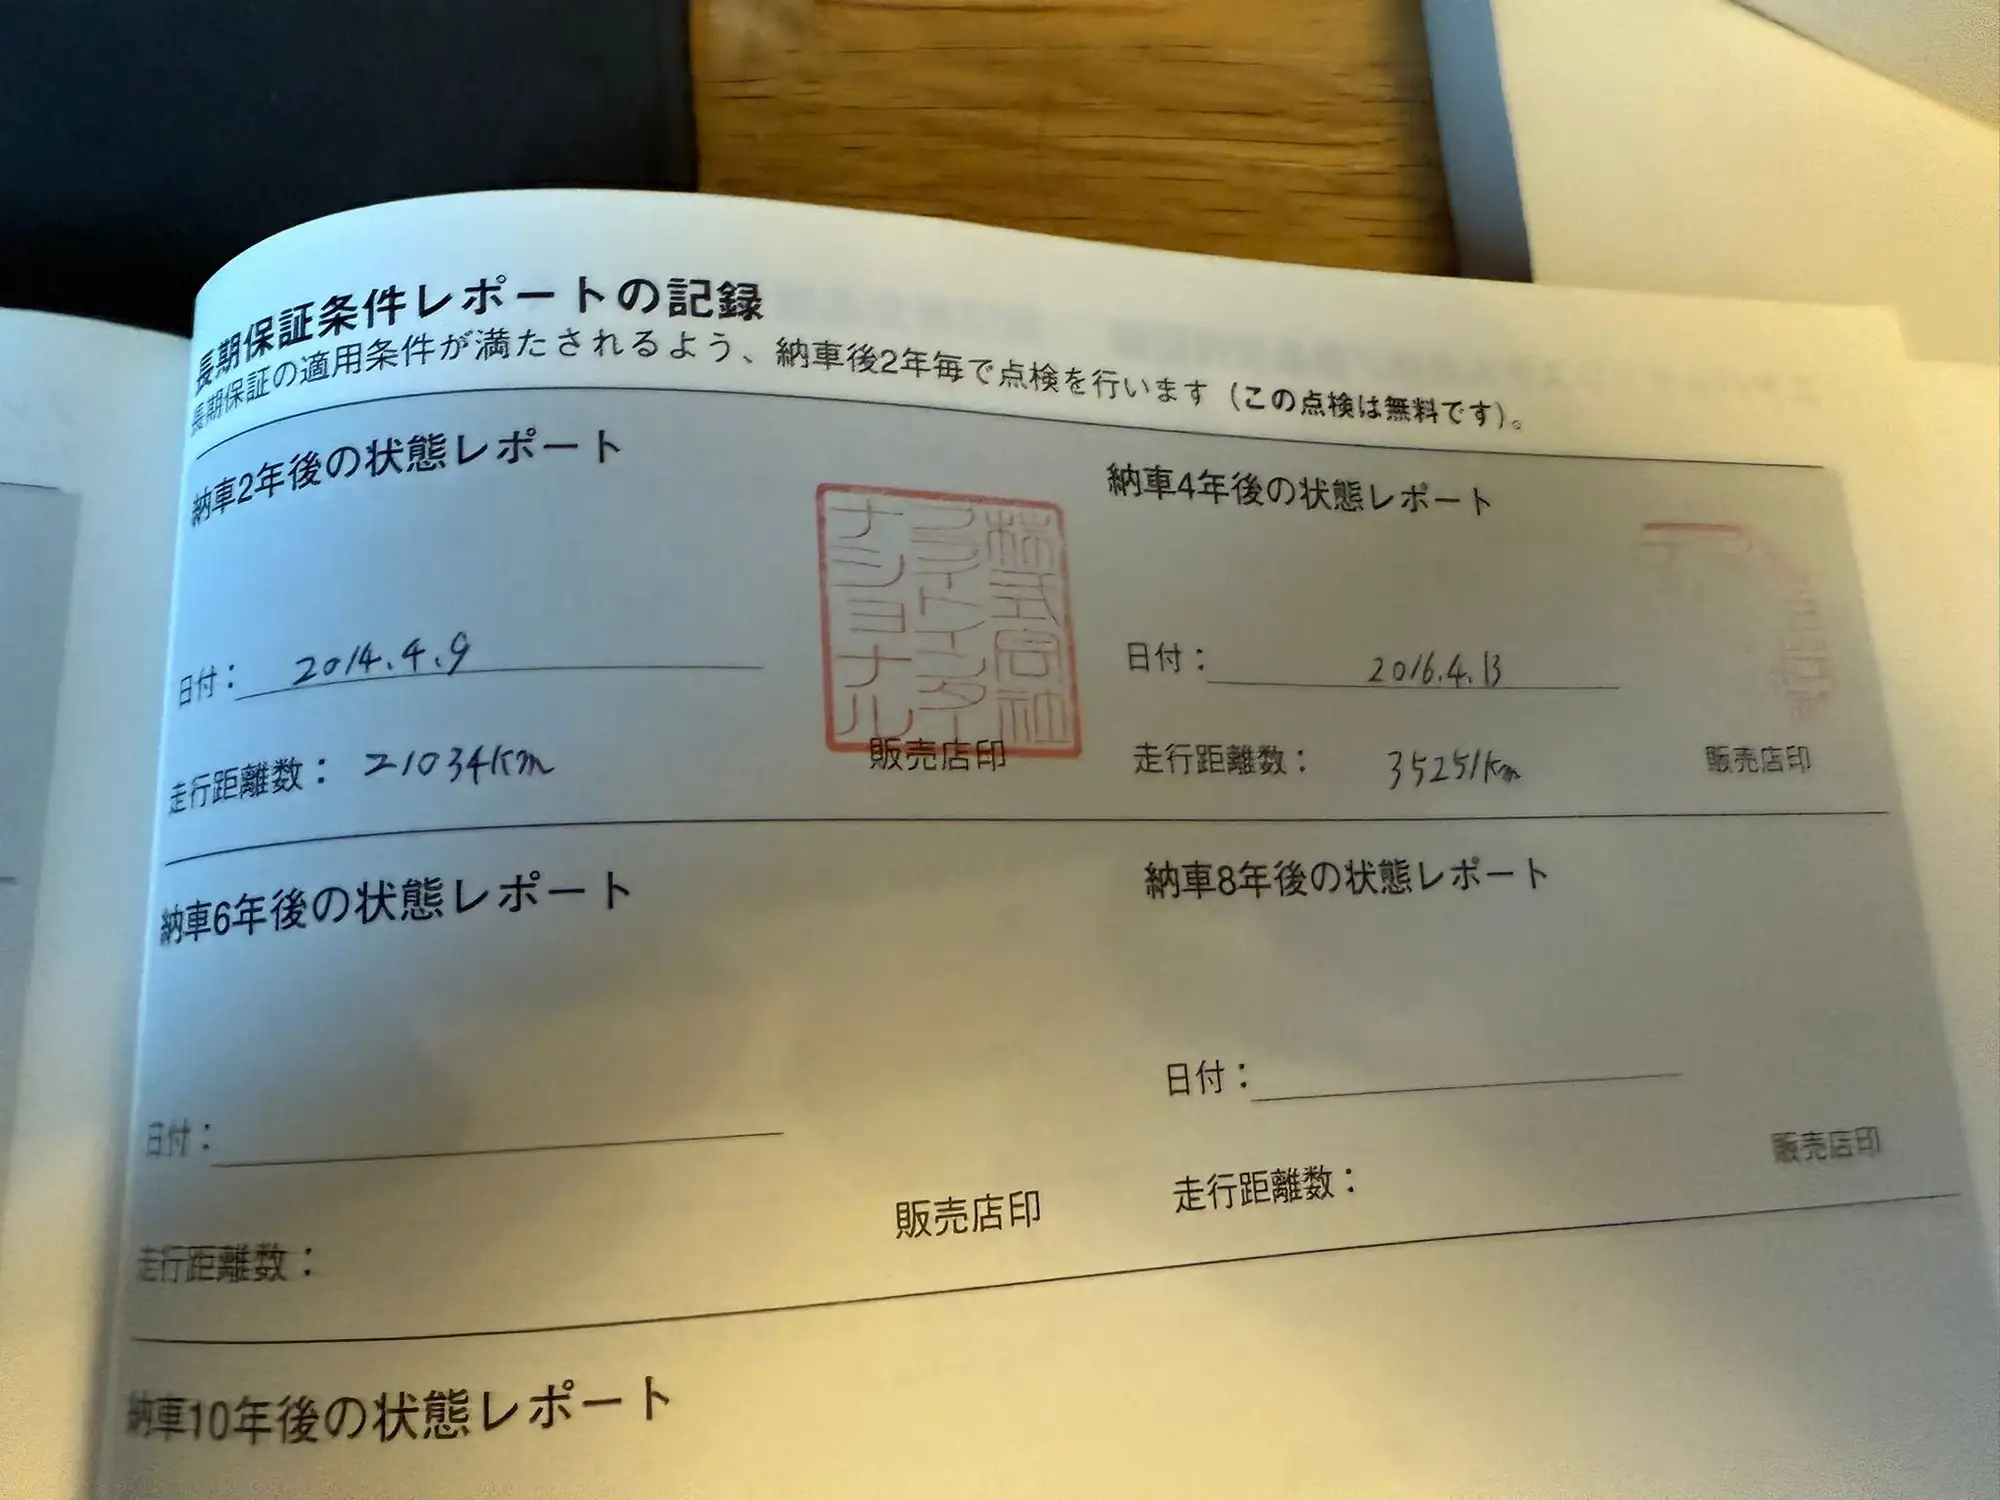 長期保証条件レポートの記録
長期保証の適用条件が満たされるよう、納車後2年毎で点検を行います（この点検は無料です）。
納車2年後の状態レポート
株式会社
ファイトインター
ナショナル
日付： 2014.4.9
走行距離数： 21034km
販売店印
納車4年後の状態レポート
日付： 2016.4.13
走行距離数： 35251km
販売店印
納車6年後の状態レポート
日付：
走行距離数：
販売店印
納車8年後の状態レポート
日付：
走行距離数：
販売店印
納車10年後の状態レポート